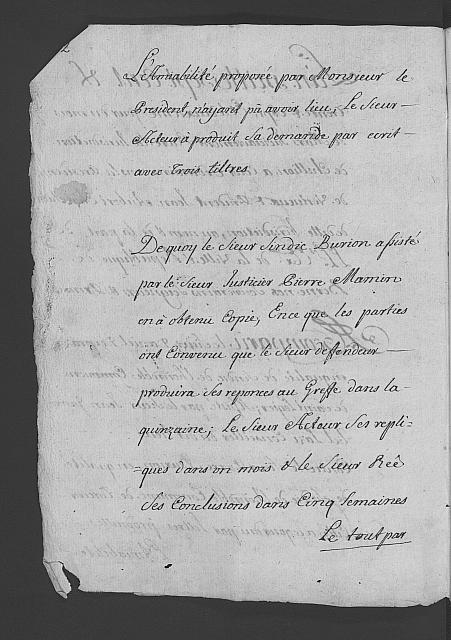 2
L'Amiabilité proposée par Monsieur le
President, n'ayant pû avoir lieu, Le Sieur
Acteur à produit sa demande par ecrit
avec Trois tiltres
De quoy le Sieur Sindic Burion assisté
par le Sieur Justicier Pierre Mamin
en à obtenu Copie, Ence que les parties
ont Convenu que le Sieur deffendeur
produira ses reponces au Greffe dans la
quinzaine; Le Sieur Acteur Ses repli=
=ques dans un mois & le Sieur Reê
Ses Conclusions dans Cinq Semaines
Le tout par